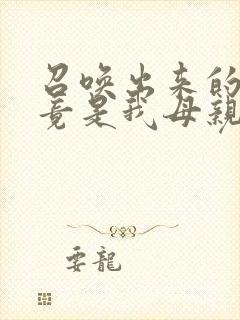 召唤出来的
竟是我母親
耍龍